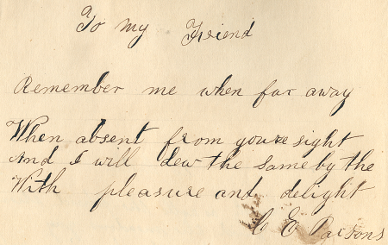 To My Friend
Remember me when far away
When absent from youre sight
And I will dew the same by the
With pleasure and delight
C E Parsons